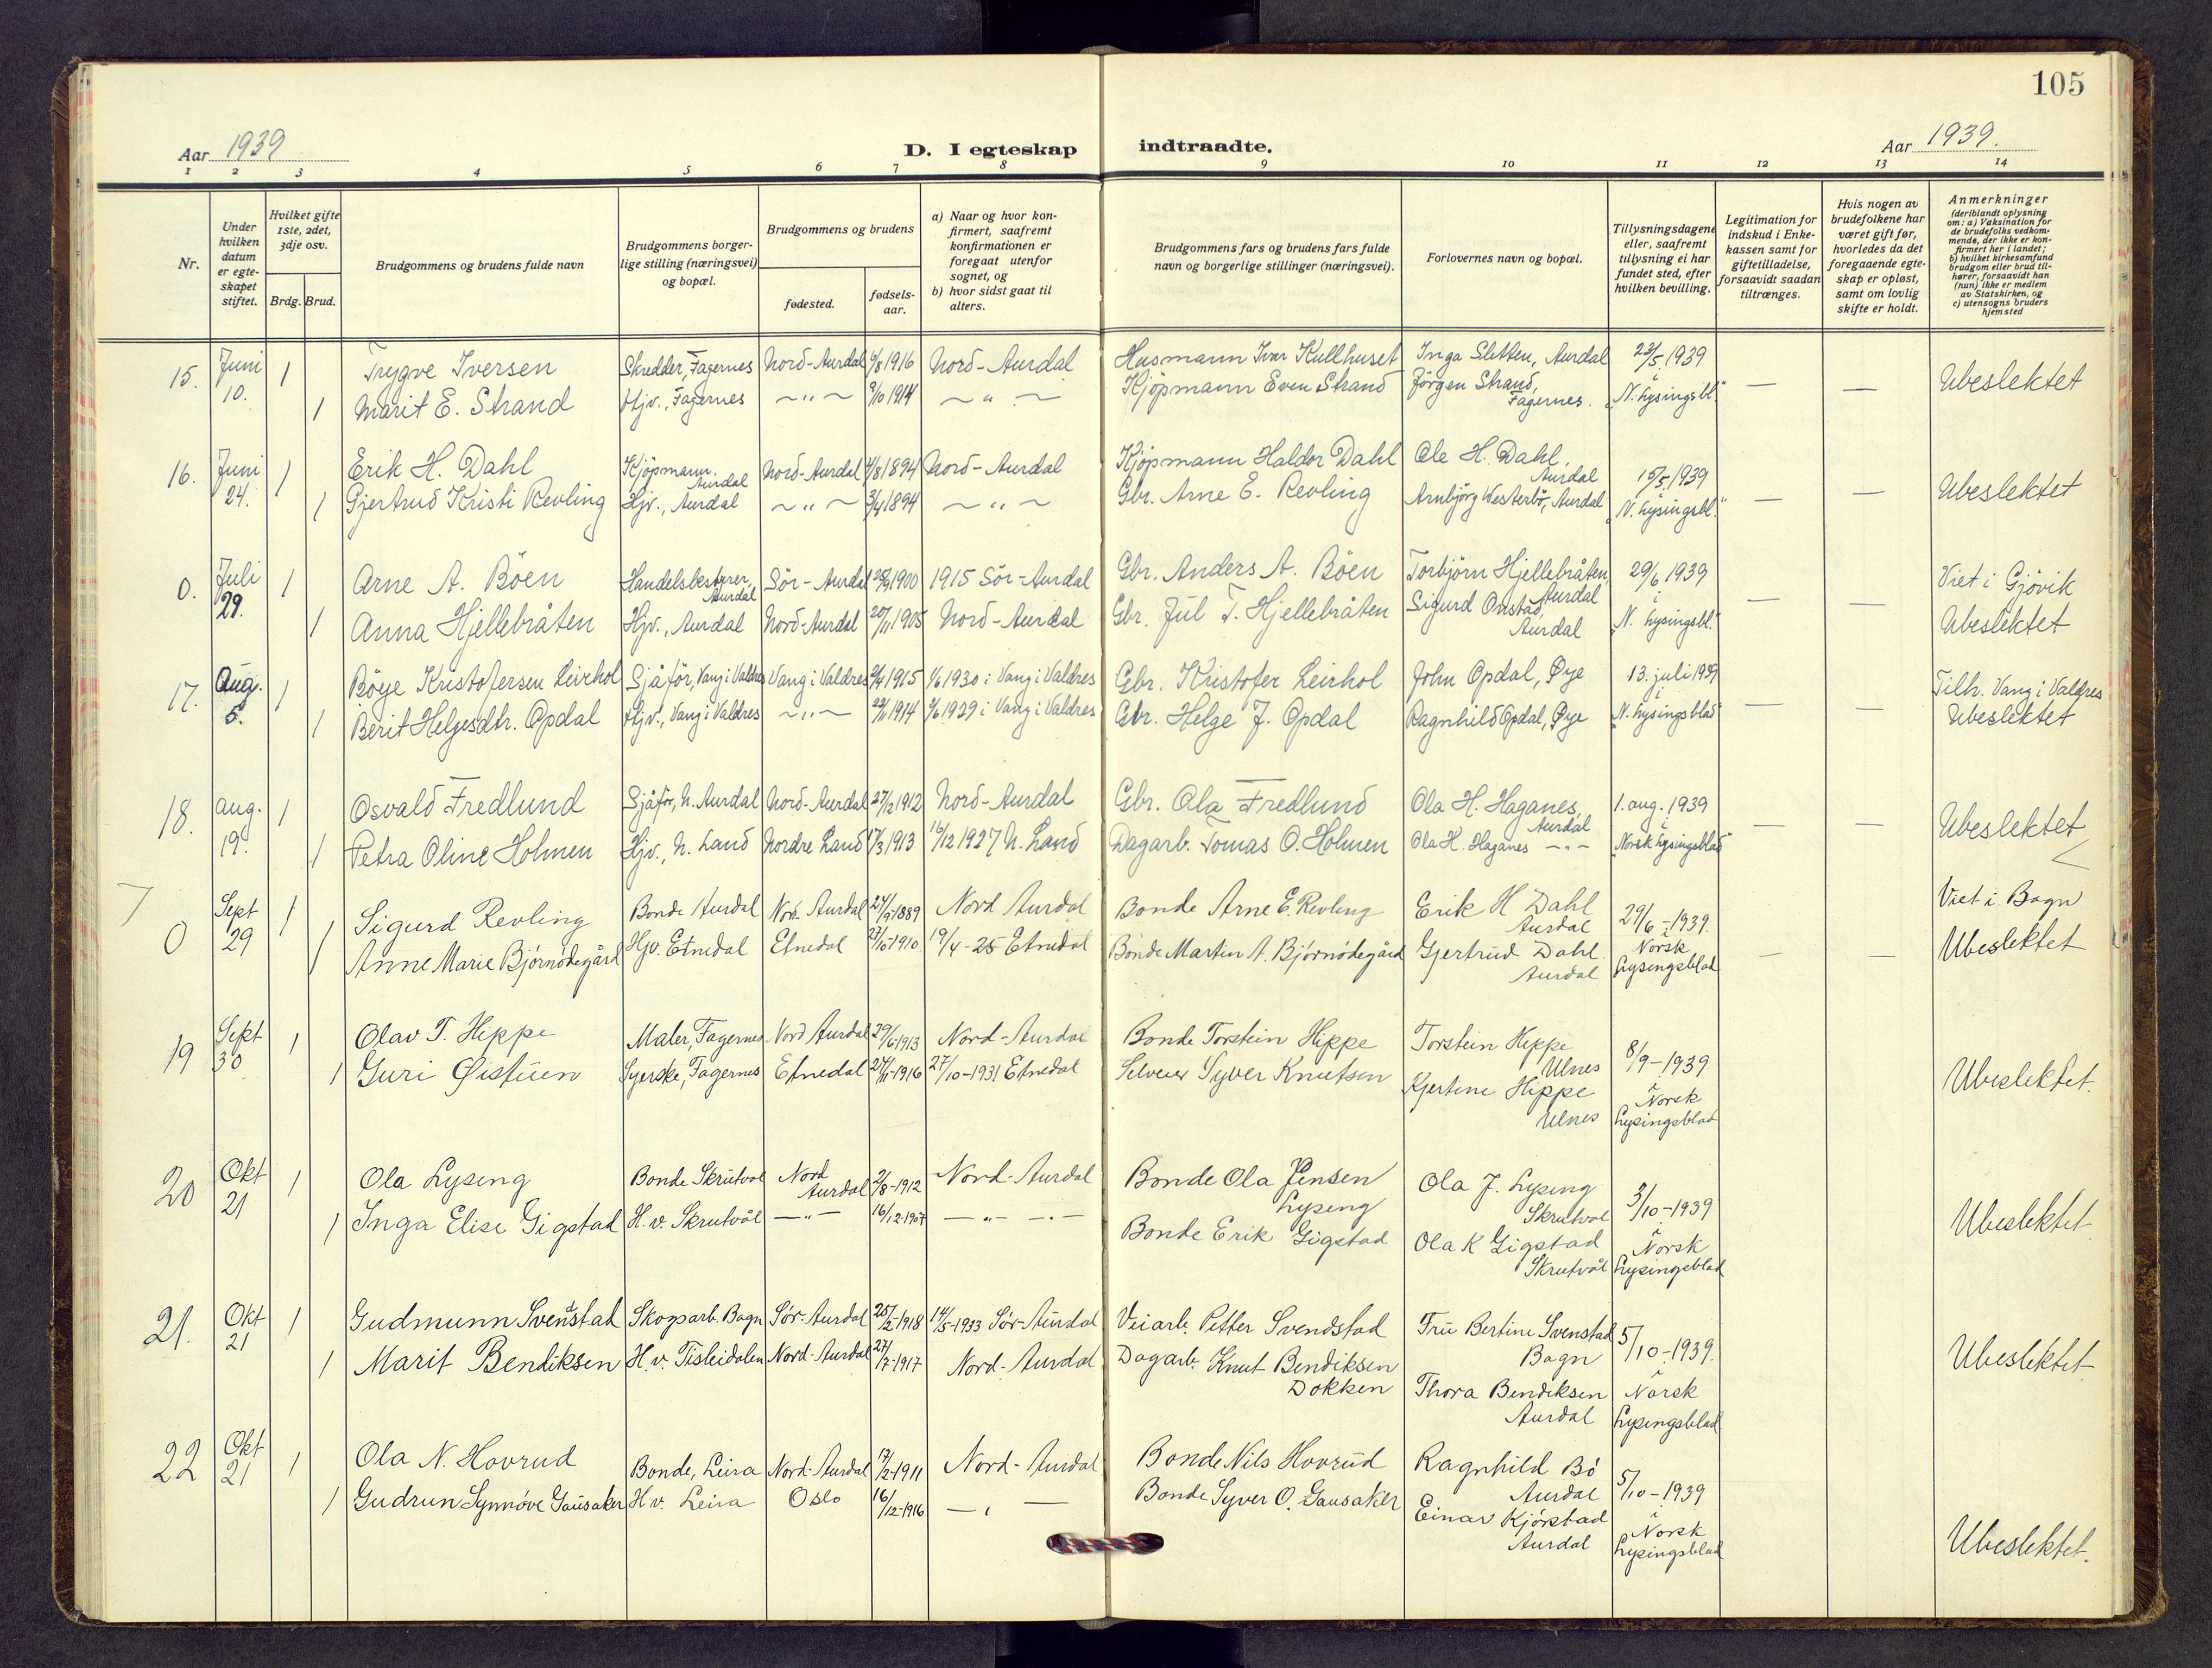 105
Aar 1939
D. I egteskap indtraadte.
Aar 1939.
1 2 3 4 5 6 7 8 9 10 11 12 13 14
Nr.
Under hvilken datum er egte-skapet stiftet.
Hvilket gifte 1ste, 2det, 3dje osv.
Brdg. Brud.
Brudgommens og brudens fulde navn
Brudgommens borger-lige stilling (næringsvei) og bopæl.
Brudgommens og brudens
fødested.
fødsels-aar.
a) Naar og hvor kon-firmert, saafremt konfirmationen er foregaat utenfor sognet, og
b) hvor sidst gaat til alters.
Brudgommens fars og brudens fars fulde navn og borgerlige stillinger (næringsvei).
Forlovernes navn og bopæl.
Tillysningsdagene eller, saafremt tillysning ei har fundet sted, efter hvilken bevilling.
Legitimation for indskud i Enke-kassen samt for giftetilladelse, forsaavidt saadan tiltrænges.
Hvis nogen av brudefolkene har været gift før, hvorledes da det foregaaende egte-skap er opløst, samt om lovlig skifte er holdt.
Anmerkninger (deriblandt oplysning om: a) Vaksination for de brudefolks vedkom-mende, der ikke er kon-firmert her i landet; b) hvilket kirkesamfund brudgom eller brud til-hører, forsaavidt han (hun) ikke er medlem av Statskirken, og c) utensogns bruders hjemsted
15. Juni 10. 1 Trygve Iversen Skredder, Fagernes Nord-Aurdal /8 1916 Nord-Aurdal Husmann Ivar Kullhuset Inga Sletten, Aurdal 23/5 1939 i — — Ubeslektet
1 Marit E. Strand Hjv., Fagernes ~ " ~ 9/10 1914 ~ " ~ Kjöpmann Even Strand Jörgen Strand, Fagernes. "N. lysingsbl."
16. Juni 24. 1 Erik H. Dahl Kjöpmann, Aurdal Nord-Aurdal /8 1894 Nord-Aurdal Kjöpmann Haldor Dahl Ole H. Dahl, Aurdal 15/5 1939 i — — Ubeslektet
1 Gjertrud Kristi Revling Hjv., Aurdal ~ " ~ 3/4 1894 ~ " ~ Gbr. Arne E. Revling Arnbjörg Westerbö, Aurdal "N. lysingsbl."
0. Juli 29. 1 Arne A. Böen Handelsbestyrer, Aurdal Sör-Aurdal 1900 1915 Sör-Aurdal Gbr. Anders A. Böen Torbjörn Hjellebråten, Aurdal 29/6 1939 i — — Viet i Gjövik
1 Anna Hjellebråten Hjv., Aurdal Nord-Aurdal 20/11 1905 Nord-Aurdal Gbr. Jul T. Hjellebråten Sigurd Onstad, Aurdal "N. lysingsbl." Ubeslektet
17. Aug. 5. 1 Böye Kristofersen Leirhol Sjåför, Vang i Valdres Vang i Valdres 1915 1/6 1930 i Vang i Valdres Gbr. Kristofer Leirhol John Opdal, Øye 13. juli 1939 i — — Tilh. Vang i Valdres
1 Berit Helgesdtr. Opdal Hjv., Vang i Valdres ~ " ~ 1914 1929 i Vang i Valdres Gbr. Helge J. Opdal Ragnhild Opdal, Øye "N. lysingsblad" Ubeslektet
18. aug. 19. 1 Osvald Fredlund Sjåför, N. Aurdal Nord-Aurdal 27/2 1912 Nord-Aurdal Gbr. Ola Fredlund Ola H. Haganes, Aurdal 1. aug. 1939 i — — Ubeslektet
1 Petra Oline Holmen Hjv., N. Land Nordre Land 17/3 1913 16/12 1927 N. Land Dagarb. Tomas O. Holmen Ola H. Haganes — " — "Norsk lysingsblad"
0 Sept 29 1 Sigurd Revling Bonde Aurdal Nord Aurdal 27/9-1889 Nord Aurdal Bonde Arne E. Revling Erik H Dahl Aurdal 29/6-1939. i — — Viet i Bagn
1 Anne Marie Bjørnødegård Hjv. Etnedal Etnedal 27/10-1910 19/4-25 Etnedal Bonde Martin A. Bjørnødegård Gjertrud Dahl Aurdal Norsk Lysingsblad Ubeslektet
19 Sept 30 1 Olav T. Hippe Maler, Fagernes Nord Aurdal 29/6-1913 Nord-Aurdal Bonde Torstein Hippe Torstein Hippe Ulnes 8/9-1939 i
1 Guri Øistuen Syerske, Fagernes Etnedal 24/11-1916 27/10-1931 Etnedal Selveier Syver Knutsen Kjertine Hippe Ulnes Norsk Lysingsblad Ubeslektet.
20 Okt 21 1 Ola Lyseng Bonde Skrutvol Nord Aurdal 2/8-1912 Nord-Aurdal Bonde Ola Jensen Lyseng Ola J. Lyseng Skrutvol 3/10-1939 i
1 Inga Elise Gigstad H.v. Skrutvål — " — 16/12-1907 — " — Bonde Erik Gigstad Ola K Gigstad Skrutvål Norsk Lysingsblad Ubeslektet
21. Okt 21 1 Gudmunn Svendstad Skogsarb. Bagn Sør-Aurdal 25/2-1918 14/5-1933 Sør-Aurdal Veiarb. Petter Svendstad Fru Bertine Svenstad Bagn 5/10-1939. i
1 Marit Bendiksen H.v. Tisleidalen Nord-Aurdal 27/2-1917 Nord-Aurdal Dagarb. Knut Bendiksen Dokken Thora Bendiksen Aurdal Norsk Lysingsblad Ubeslektet.
22 Okt 21 1 Ola N. Hovrud Bonde, Leira Nord-Aurdal 17/2-1911 Nord-Aurdal Bonde Nils Hovrud Ragnhild Bø Aurdal 5/10-1939 i
1 Gudrun Synnøve Gausaker H.v. Leira Oslo 16/12-1916 — " — Bonde Syver O. Gausaker Einar Kjørstad Aurdal Norsk Lysingsblad Ubeslektet.